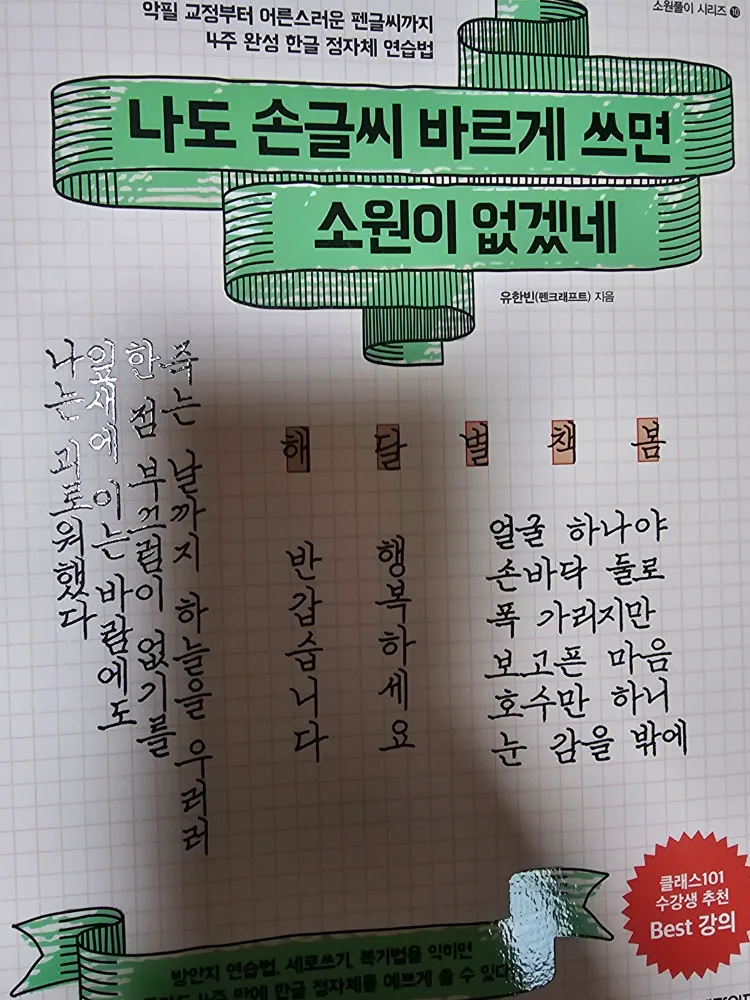 악필 교정부터 어른스러운 펜글씨까지
4주 완성 한글 정자체 연습법
소원풀이 시리즈 10
나도 손글씨 바르게 쓰면
소원이 없겠네
유한빈(펜크래프트) 지음
죽는 날까지 하늘을 우러러
한 점 부끄럼이 없기를
잎새에 이는 바람에도
나는 괴로워했다
해 달 별 책 봄
반갑습니다
행복하세요
얼굴 하나야
손바닥 둘로
폭 가리지만
보고픈 마음
호수만 하니
눈 감을 밖에
클래스101
수강생 추천
Best 강의
방안지 연습법, 세로쓰기, 복기법을 익히면
4주 만에 한글 정자체를 예쁘게 쓸 수 있다